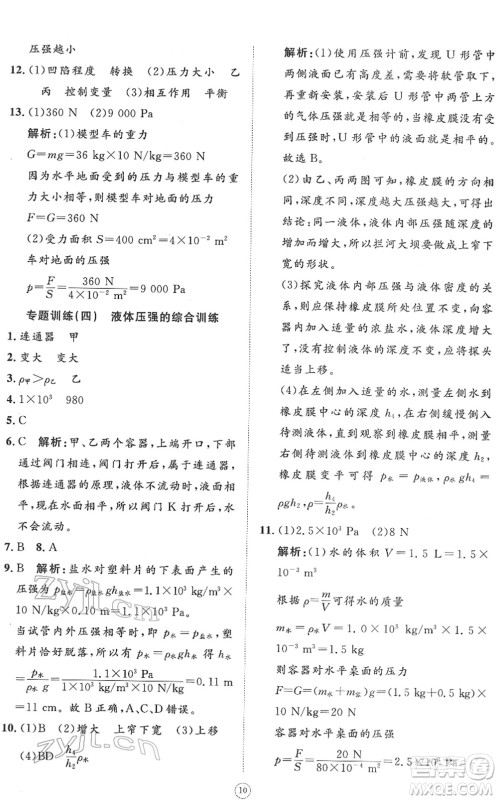 压强越小
12. (1)凹陷程度 转换 (2)压力大小 乙
丙 控制变量 (3)相互作用 平衡
13. (1)360 N (2)9 000 Pa
解析:(1)模型车的重力
G=mg=36 kg×10 N/kg=360 N
因为水平地面受到的压力与模型车的重力大小相等，则模型车对地面的压力
F=G=360 N
(2)受力面积 S=400 cm²=4×10⁻² m²
车对地面的压强
p=F/S=360 N/(4×10⁻² m²)=9 000 Pa
专题训练(四) 液体压强的综合训练
1. 连通器 甲
2. 变大 变大
3. ρ甲>ρ乙 乙
4. 1×10³ 980
5. C
6. C 解析:甲、乙两个容器，上端开口，下部
通过阀门相连，阀门打开，属于连通器，
根据连通器的原理，液体不流动时，液面
保持水平，所以，阀门 K 打开后，水
不会流动。
7. B 8. A
9. B 解析:盐水对塑料片的下表面产生
的压强为 p盐水=ρ盐水gh盐水=1.1×10³ kg/m³×
10 N/kg×0.1 m=1.1×10³ Pa。
当试管内外压强相等时，p水=p盐水，塑
料片恰好脱落，所以，试管内水的高度为
h水=p水/(ρ水g)=1.1×10³ Pa/(1×10³ kg/m³×10 N/kg)=0.11 m
=11 cm。故 B 正确，A、C、D 错误。
10. (1)B (2)增大 上窄下宽 (3)上移
(4)BD h₄/h₂ρ水
解析:(1)使用压强计前，发现 U 形管中
两侧液面已有高度差，应该拆除软管，
再重新安装，安装后 U 形管中的气压
等于大气压，U 形管中的液面就相平。
故选 B。
(2)由乙、丙两图可知，橡皮膜的方向相
同，深度越大，液体压强越大，可以得出
结论：同一液体，液体内部压强随深度的
增加而增大，所以拦河大坝要做成上窄下
宽的形状。
(3)探究液体内部压强与液体密度的关
系，应保持橡皮膜所处位置不变，向容
器内加入适量的浓盐水，则液体密度增
大，同时由于液体增加，深度也变大了，
没有控制液体的深度相同，所以橡皮膜
应适当上移。
(4)左侧加入适量的水，测量左侧水到
橡皮膜中心的深度 h₄，在右侧缓慢倒入
待测液体，直到观察到橡皮膜变平，测量
右侧待测液体到橡皮膜中心的深度 h₂，
橡皮膜变平，则 p水=p液，即 ρ水gh₄=
ρgh₂，ρ=h₄/h₂ρ水。
11. (1)2.5×10³ Pa (2)8 N
解析:(1)水的体积 V=1.5 L=1.5×
10⁻³ m³
根据 ρ=m/V可得水的质量
m水=ρ水V=1×10³ kg/m³×1.5×
10⁻³ m³=1.5 kg
则容器对水平桌面的压力
F=G=(m水+m容)g=(1.5 kg+0.5 kg)×
10 N/kg=20 N
容器对桌面的压强
p=F/S=20 N/(80×10⁻⁴ m²)=2.5×10³ Pa
10